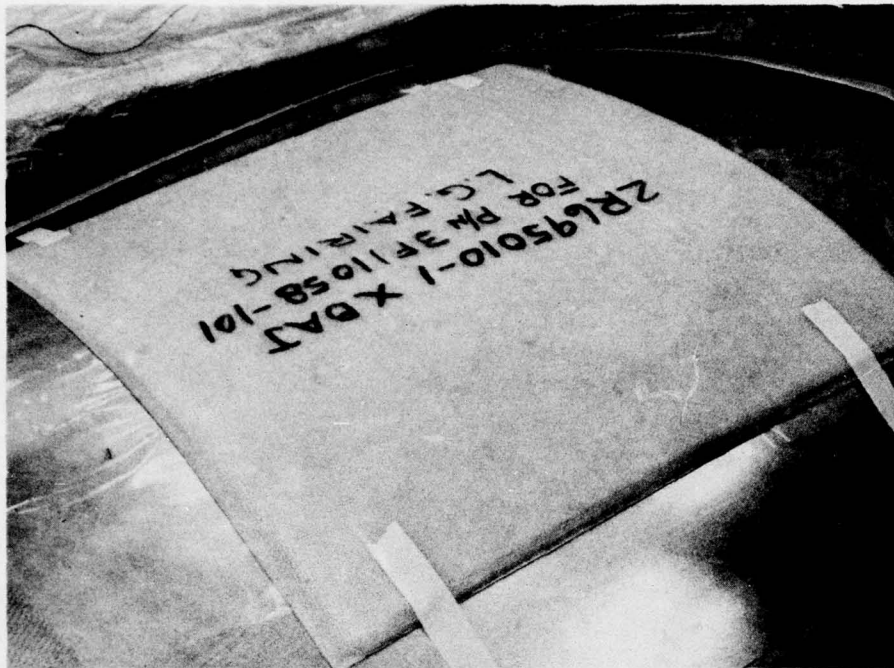 2R695010-1 XBAJ
FOR P/N 3F11058-101
L.G. FAIRING